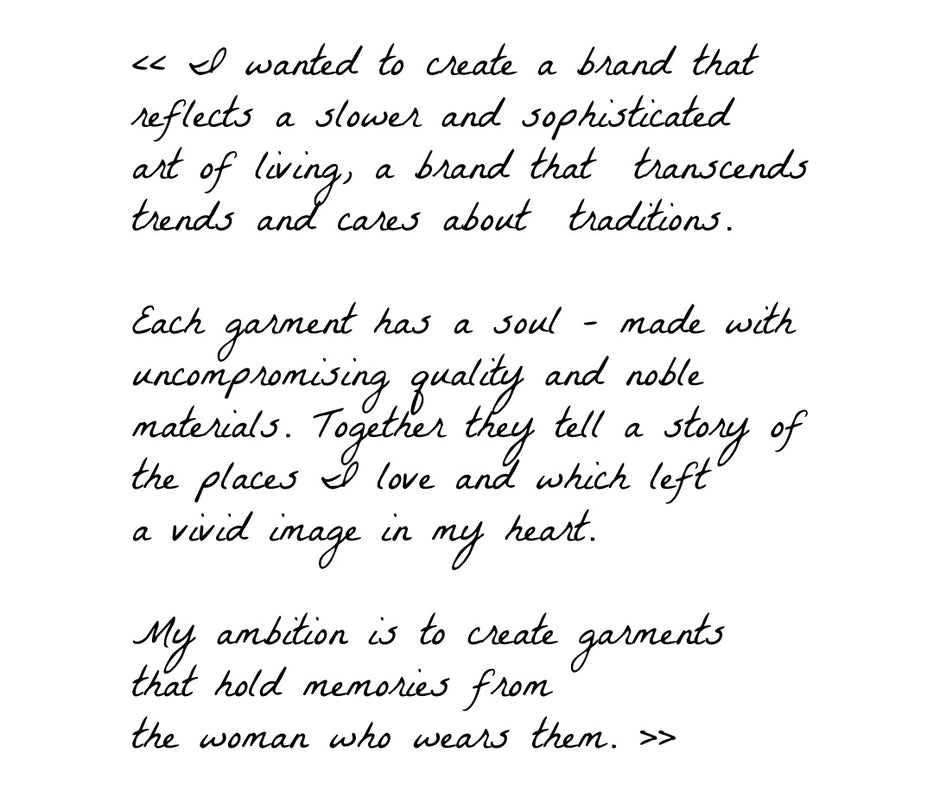 << I wanted to create a brand that
reflects a slower and sophisticated
art of living, a brand that transcends
trends and cares about traditions.
Each garment has a soul - made with
uncompromising quality and noble
materials. Together they tell a story of
the places I love and which left
a vivid image in my heart.
My ambition is to create garments
that hold memories from
the woman who wears them. >>